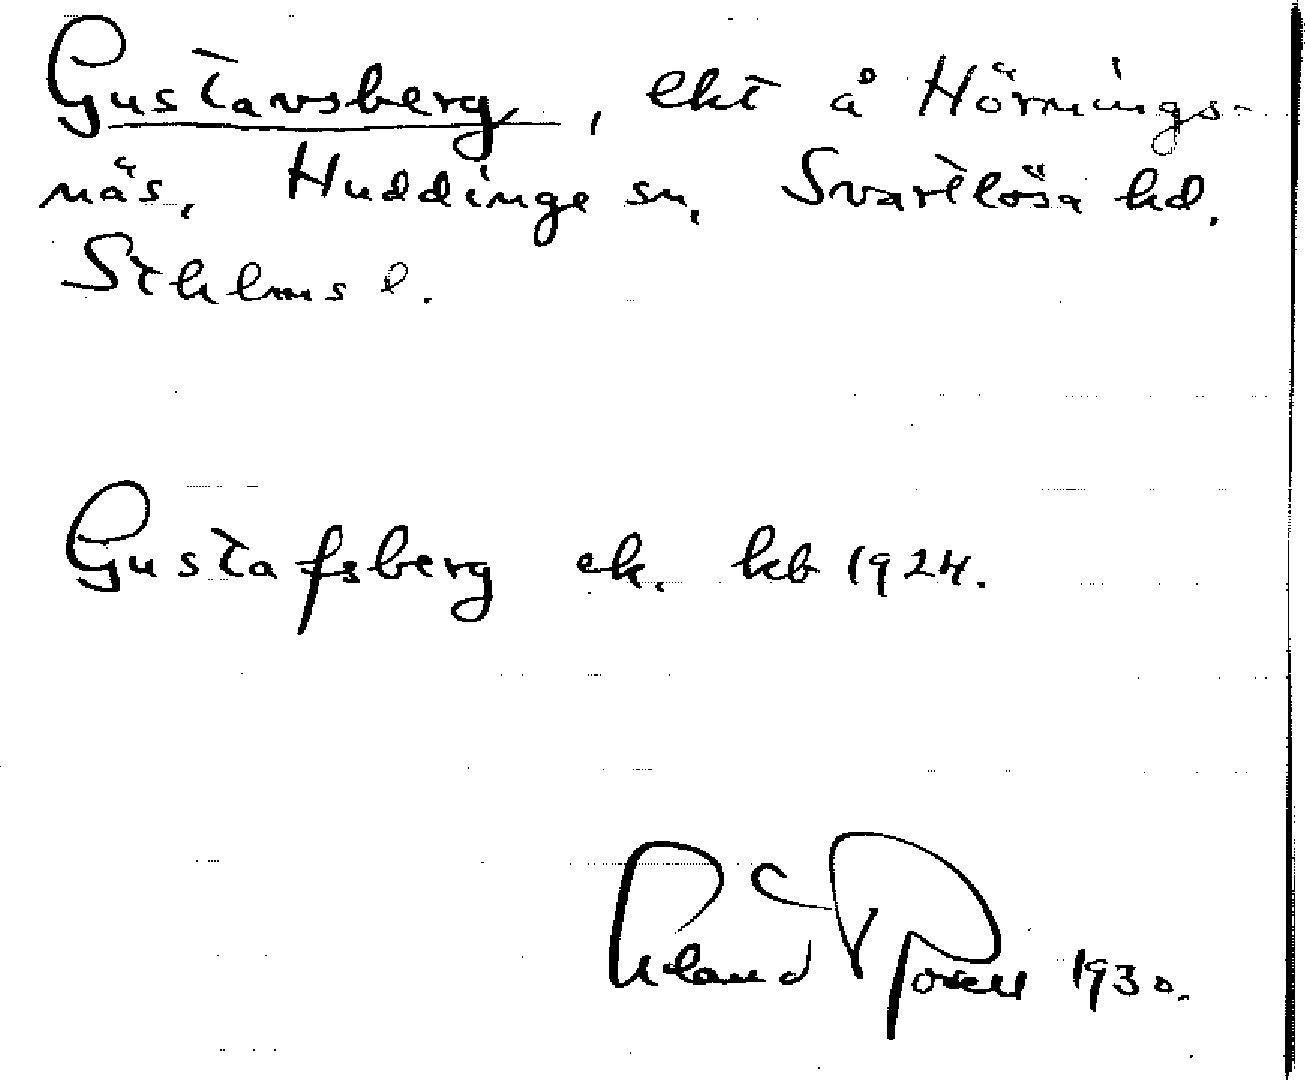 Gustavsberg, lht å Hörnings-
näs, Huddinge sn, Svartlösa hd.
Sthlms l.
Gustafsberg ek. kb 1924.
1930.